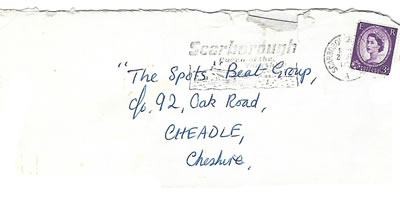 Scarborough
SCARBOROUGH
E R
"The Spots" Beat Group,
c/o. 92, Oak Road,
CHEADLE,
Cheshire,